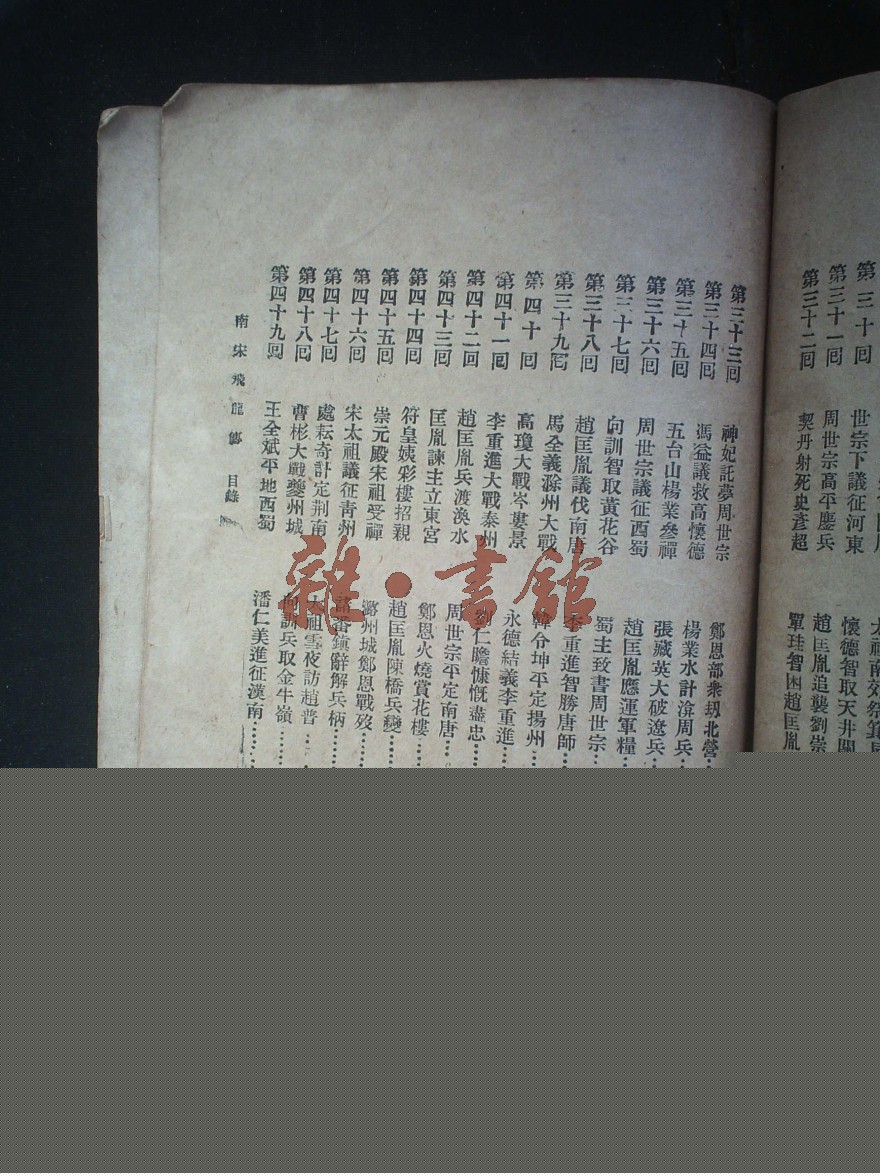 第三十回
世宗下議征河東
第三十一回 周世宗高平鏖兵 懷德智取天井關
第三十二回 契丹射死史彥超 趙匡胤追襲劉崇
單珪智困趙匡胤
第三十三回 神妃託夢周世宗 鄭恩部衆刼北營
第三十四回 馮益議救高懷德 楊業水計渰周兵
第三十五回 五台山楊業參禪 張藏英大破遼兵
第三十六回 周世宗議征西蜀 趙匡胤應運軍糧
第三十七回 向訓智取黃花谷 蜀主致書周世宗
第三十八回 趙匡胤議伐南唐 李重進智勝唐師
第三十九回 馬全義滁州大戰 韓令坤平定揚州
第四十回 高瓊大戰岑婁景 永德結義李重進
第四十一回 李重進大戰泰州 劉仁瞻慷慨盡忠
第四十二回 趙匡胤兵渡渙水 周世宗平定南唐
第四十三回 匡胤諫主立東宮 鄭恩火燒賞花樓
第四十四回 符皇姨彩樓招親 趙匡胤陳橋兵變
第四十五回 崇元殿宋祖受禪 潞州城鄭恩戰歿
第四十六回 宋太祖議征青州 諸番鎮辭解兵柄
第四十七回 處耘奇計定荆南 太祖雪夜訪趙普
第四十八回 曹彬大戰夔州城 向訓兵取金牛嶺
第四十九回 王全斌平地西蜀 潘仁美進征漢南
南宋飛龍傳 目錄
雜·書館